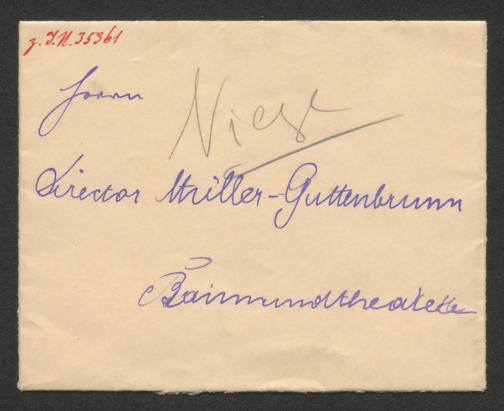 z. I.N. 35361
Herrn
Niese
Director Müller-Guttenbrunn
Raimundtheater